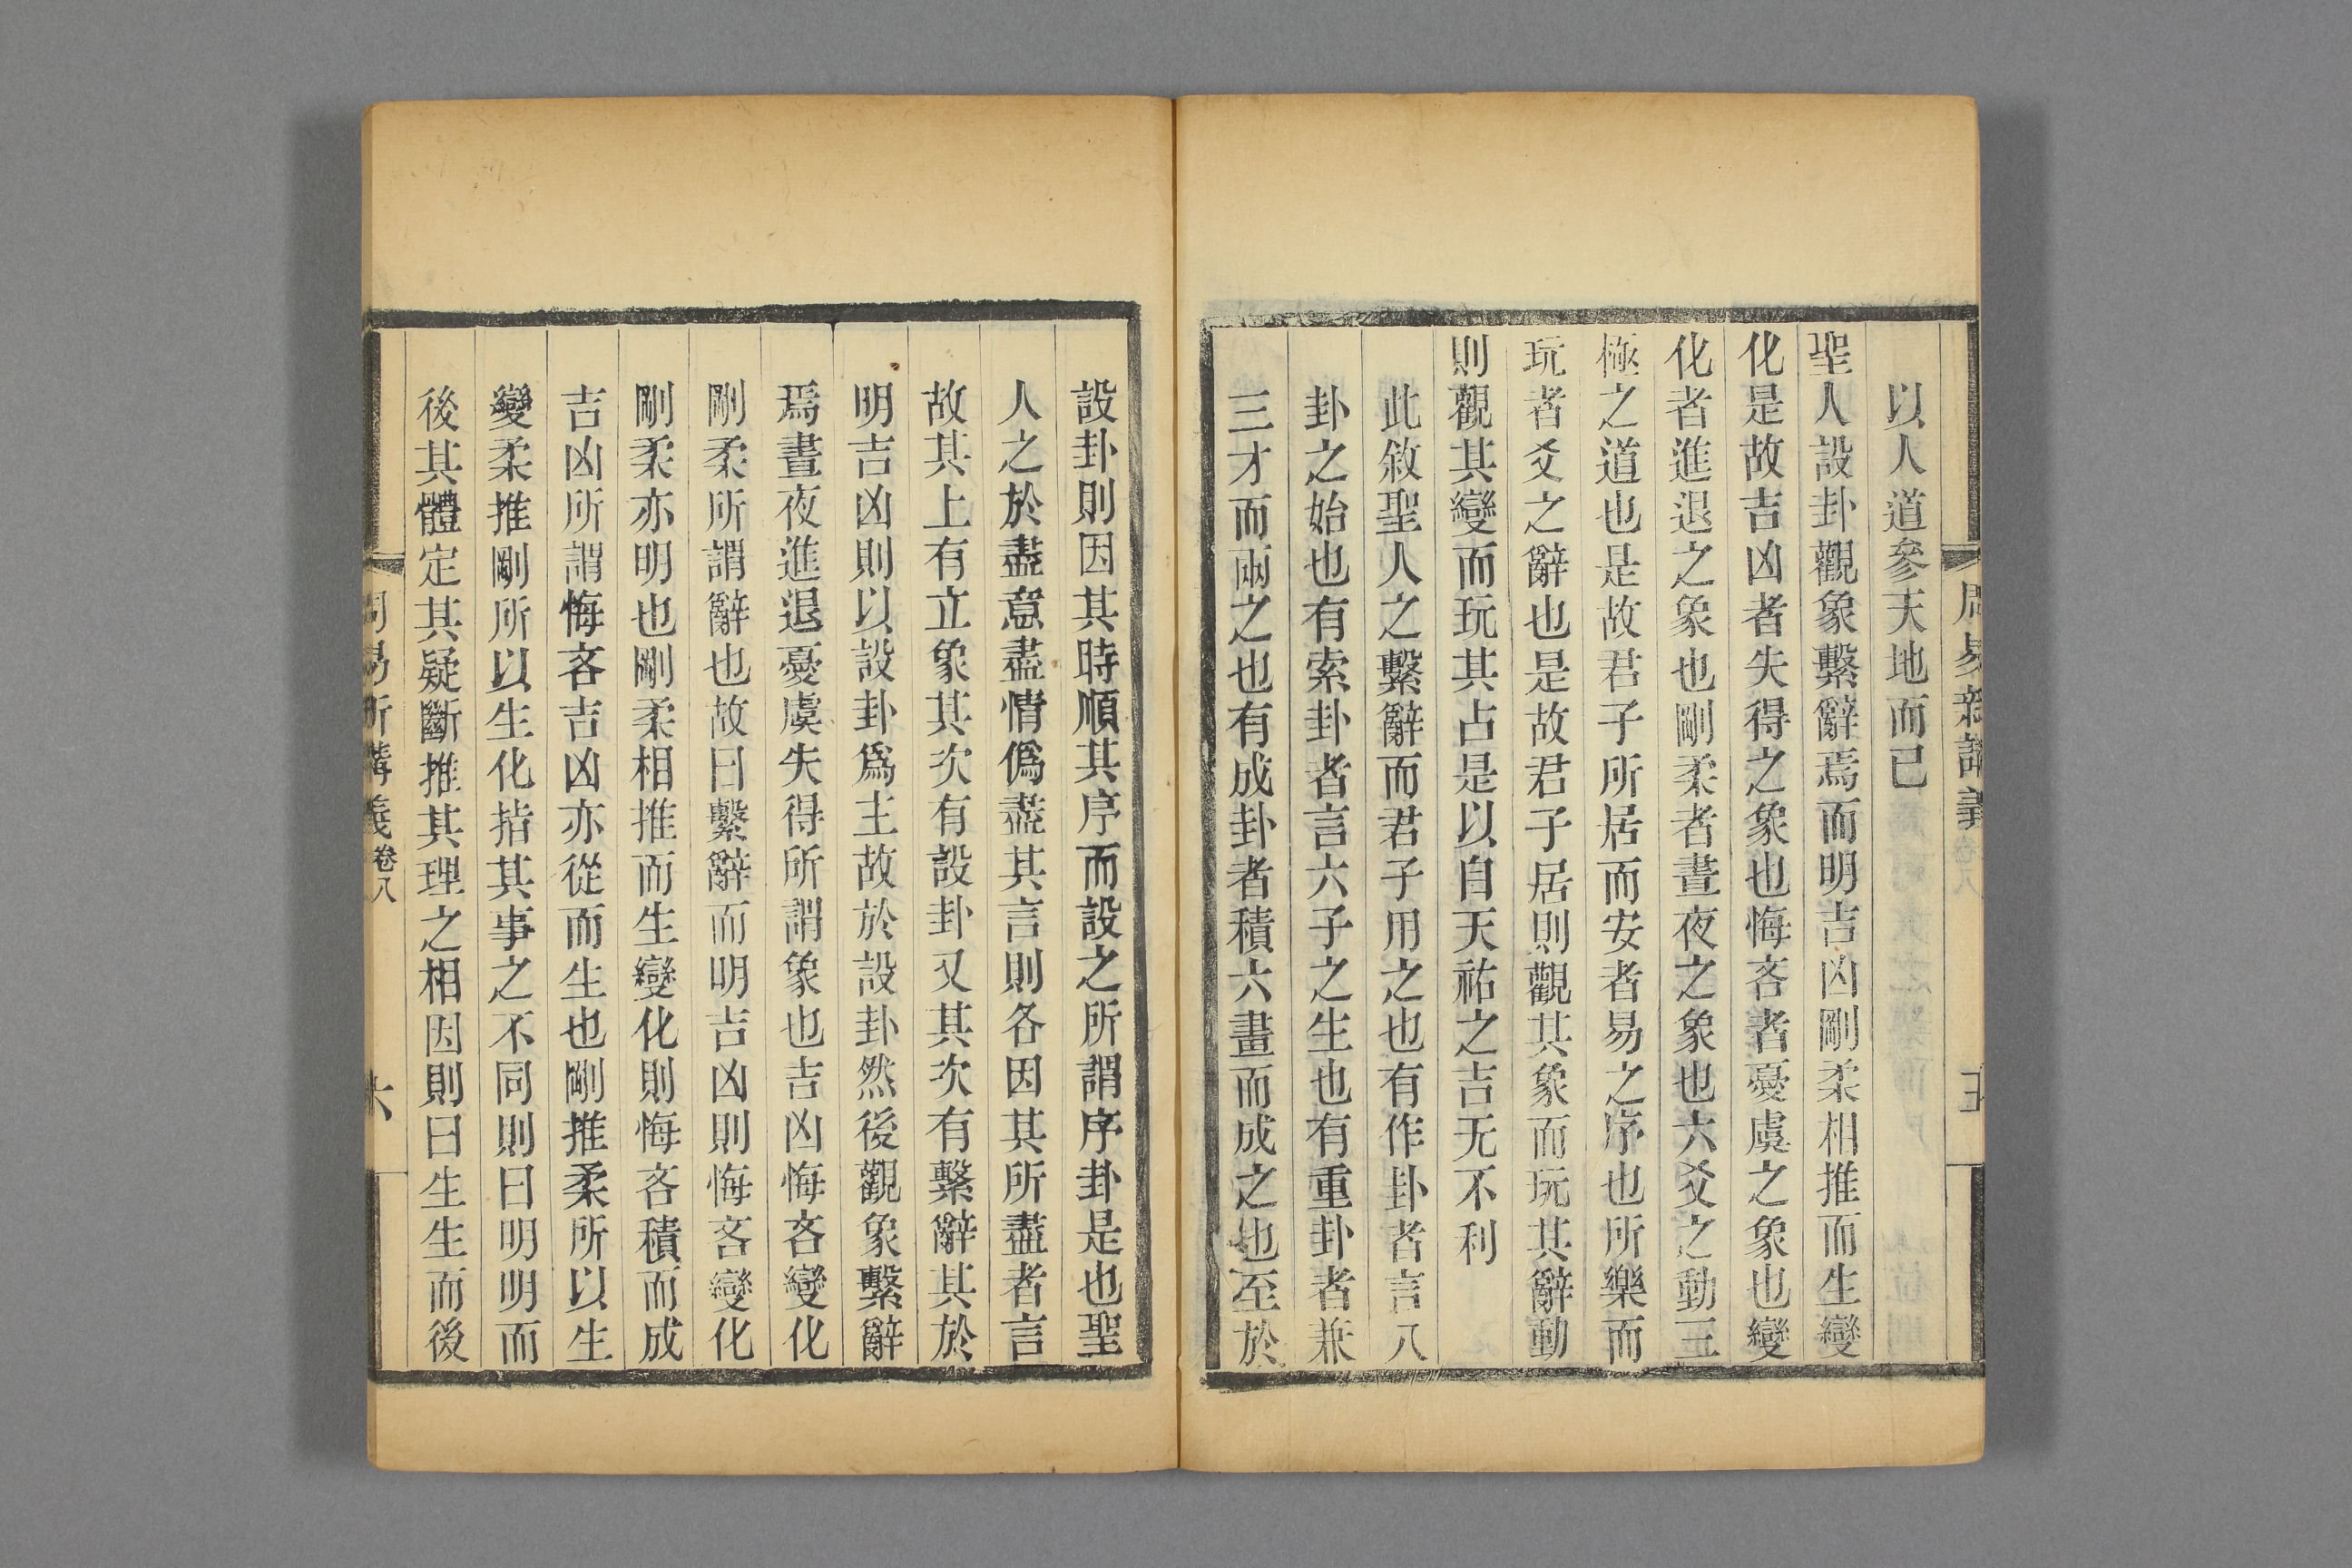 周易新講義 卷八 五
以人道參天地而已
聖人設卦觀象繫辭焉而明吉凶剛柔相推而生變
化是故吉凶者失得之象也悔吝者憂虞之象也變
化者進退之象也剛柔者晝夜之象也六爻之動三
極之道也是故君子所居而安者易之序也所樂而
玩者爻之辭也是故君子居則觀其象而玩其辭動
則觀其變而玩其占是以自天祐之吉无不利
此敘聖人之繫辭而君子用之也有作卦者言八
卦之始也有索卦者言六子之生也有重卦者兼
三才而兩之也有成卦者積六畫而成之也至於
設卦則因其時順其序而設之所謂序卦是也聖
人之於盡意盡情僞盡其言則各因其所盡者言
故其上有立象其次有設卦又其次有繫辭其於
明吉凶則以設卦爲主故於設卦然後觀象繫辭
焉晝夜進退憂虞失得所謂象也吉凶悔吝變化
剛柔所謂辭也故曰繫辭而明吉凶則悔吝變化
剛柔亦明也剛柔相推而生變化則悔吝積而成
吉凶所謂悔吝吉凶亦從而生也剛推柔所以生
變柔推剛所以生化揩其事之不同則曰明明而
後其體定其疑斷推其理之相因則曰生生而後
周易新講義 卷八 六